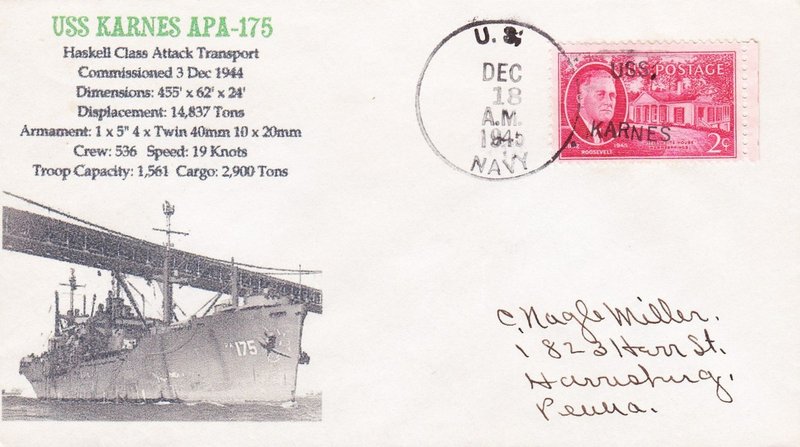 USS KARNES APA-175
Haskell Class Attack Transport
Commissioned 3 Dec 1944
Dimensions: 455' x 62' x 24'
Displacement: 14,837 Tons
Armament: 1 x 5" 4 x Twin 40mm 10 x 20mm
Crew: 536 Speed: 19 Knots
Troop Capacity: 1,561 Cargo: 2,900 Tons
U. S.
DEC
18
A.M.
1945
NAVY
USS,
KARNES
POSTAGE
ROOSEVELT
1945
2¢
175
C. Nagle Miller.
1823 Herr St.
Harrisburg,
Penna.